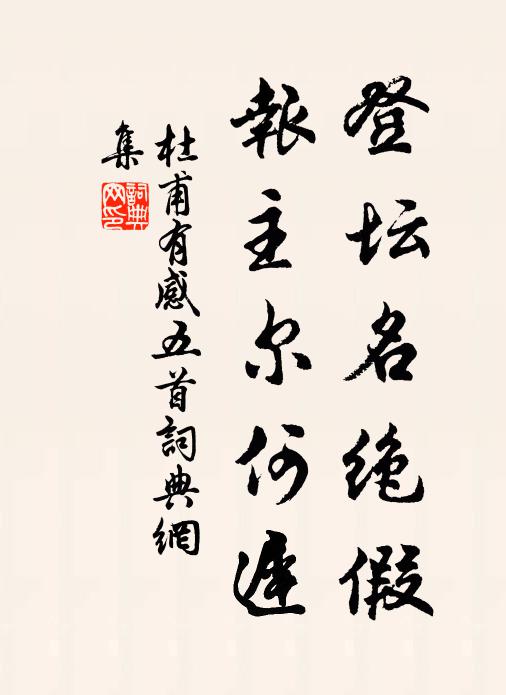 登坛名绝假
報主尔何遲
杜甫有感五首詞典網
集
詞典
网印